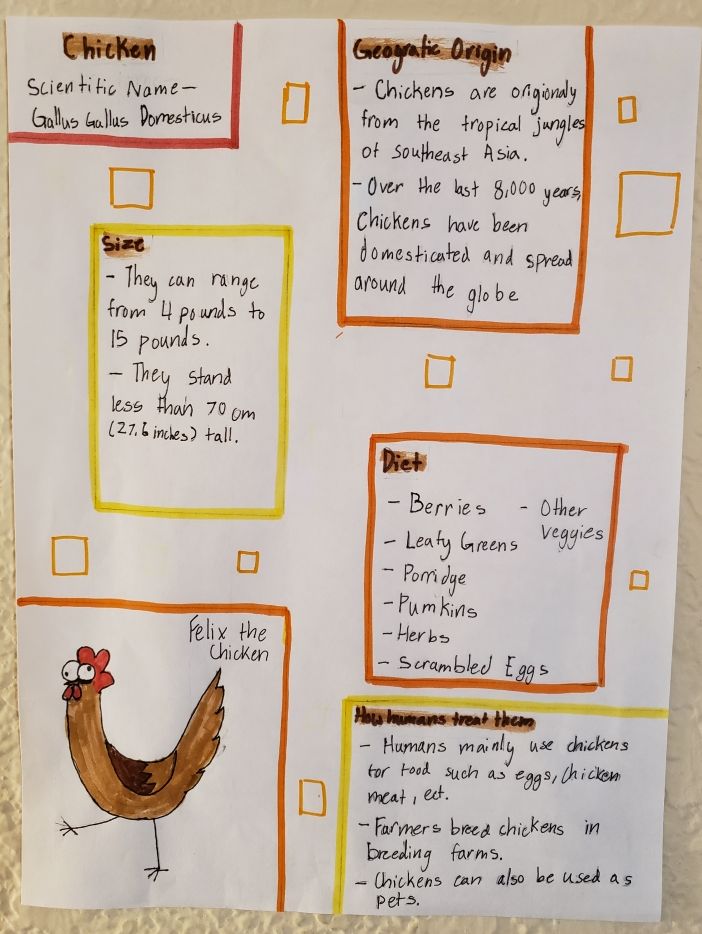 Chicken
Scientific Name-
Gallus Gallus Domesticus
Geografic Origin
- Chickens are origionaly
from the tropical jungles
of Southeast Asia.
- Over the last 8,000 years,
Chickens have been
domesticated and spread
around the globe
Size
- They can range
from 4 pounds to
15 pounds.
- They stand
less than 70 cm
(27.6 inches) tall.
Diet
- Berries
- Leafy Greens
- Porridge
- Pumkins
- Herbs
- Scrambled Eggs
- Other
Veggies
Felix the
Chicken
How humans treat them
- Humans mainly use chickens
for food such as eggs, Chicken
meat, ect.
- Farmers breed chickens in
breeding farms.
- Chickens can also be used as
pets.